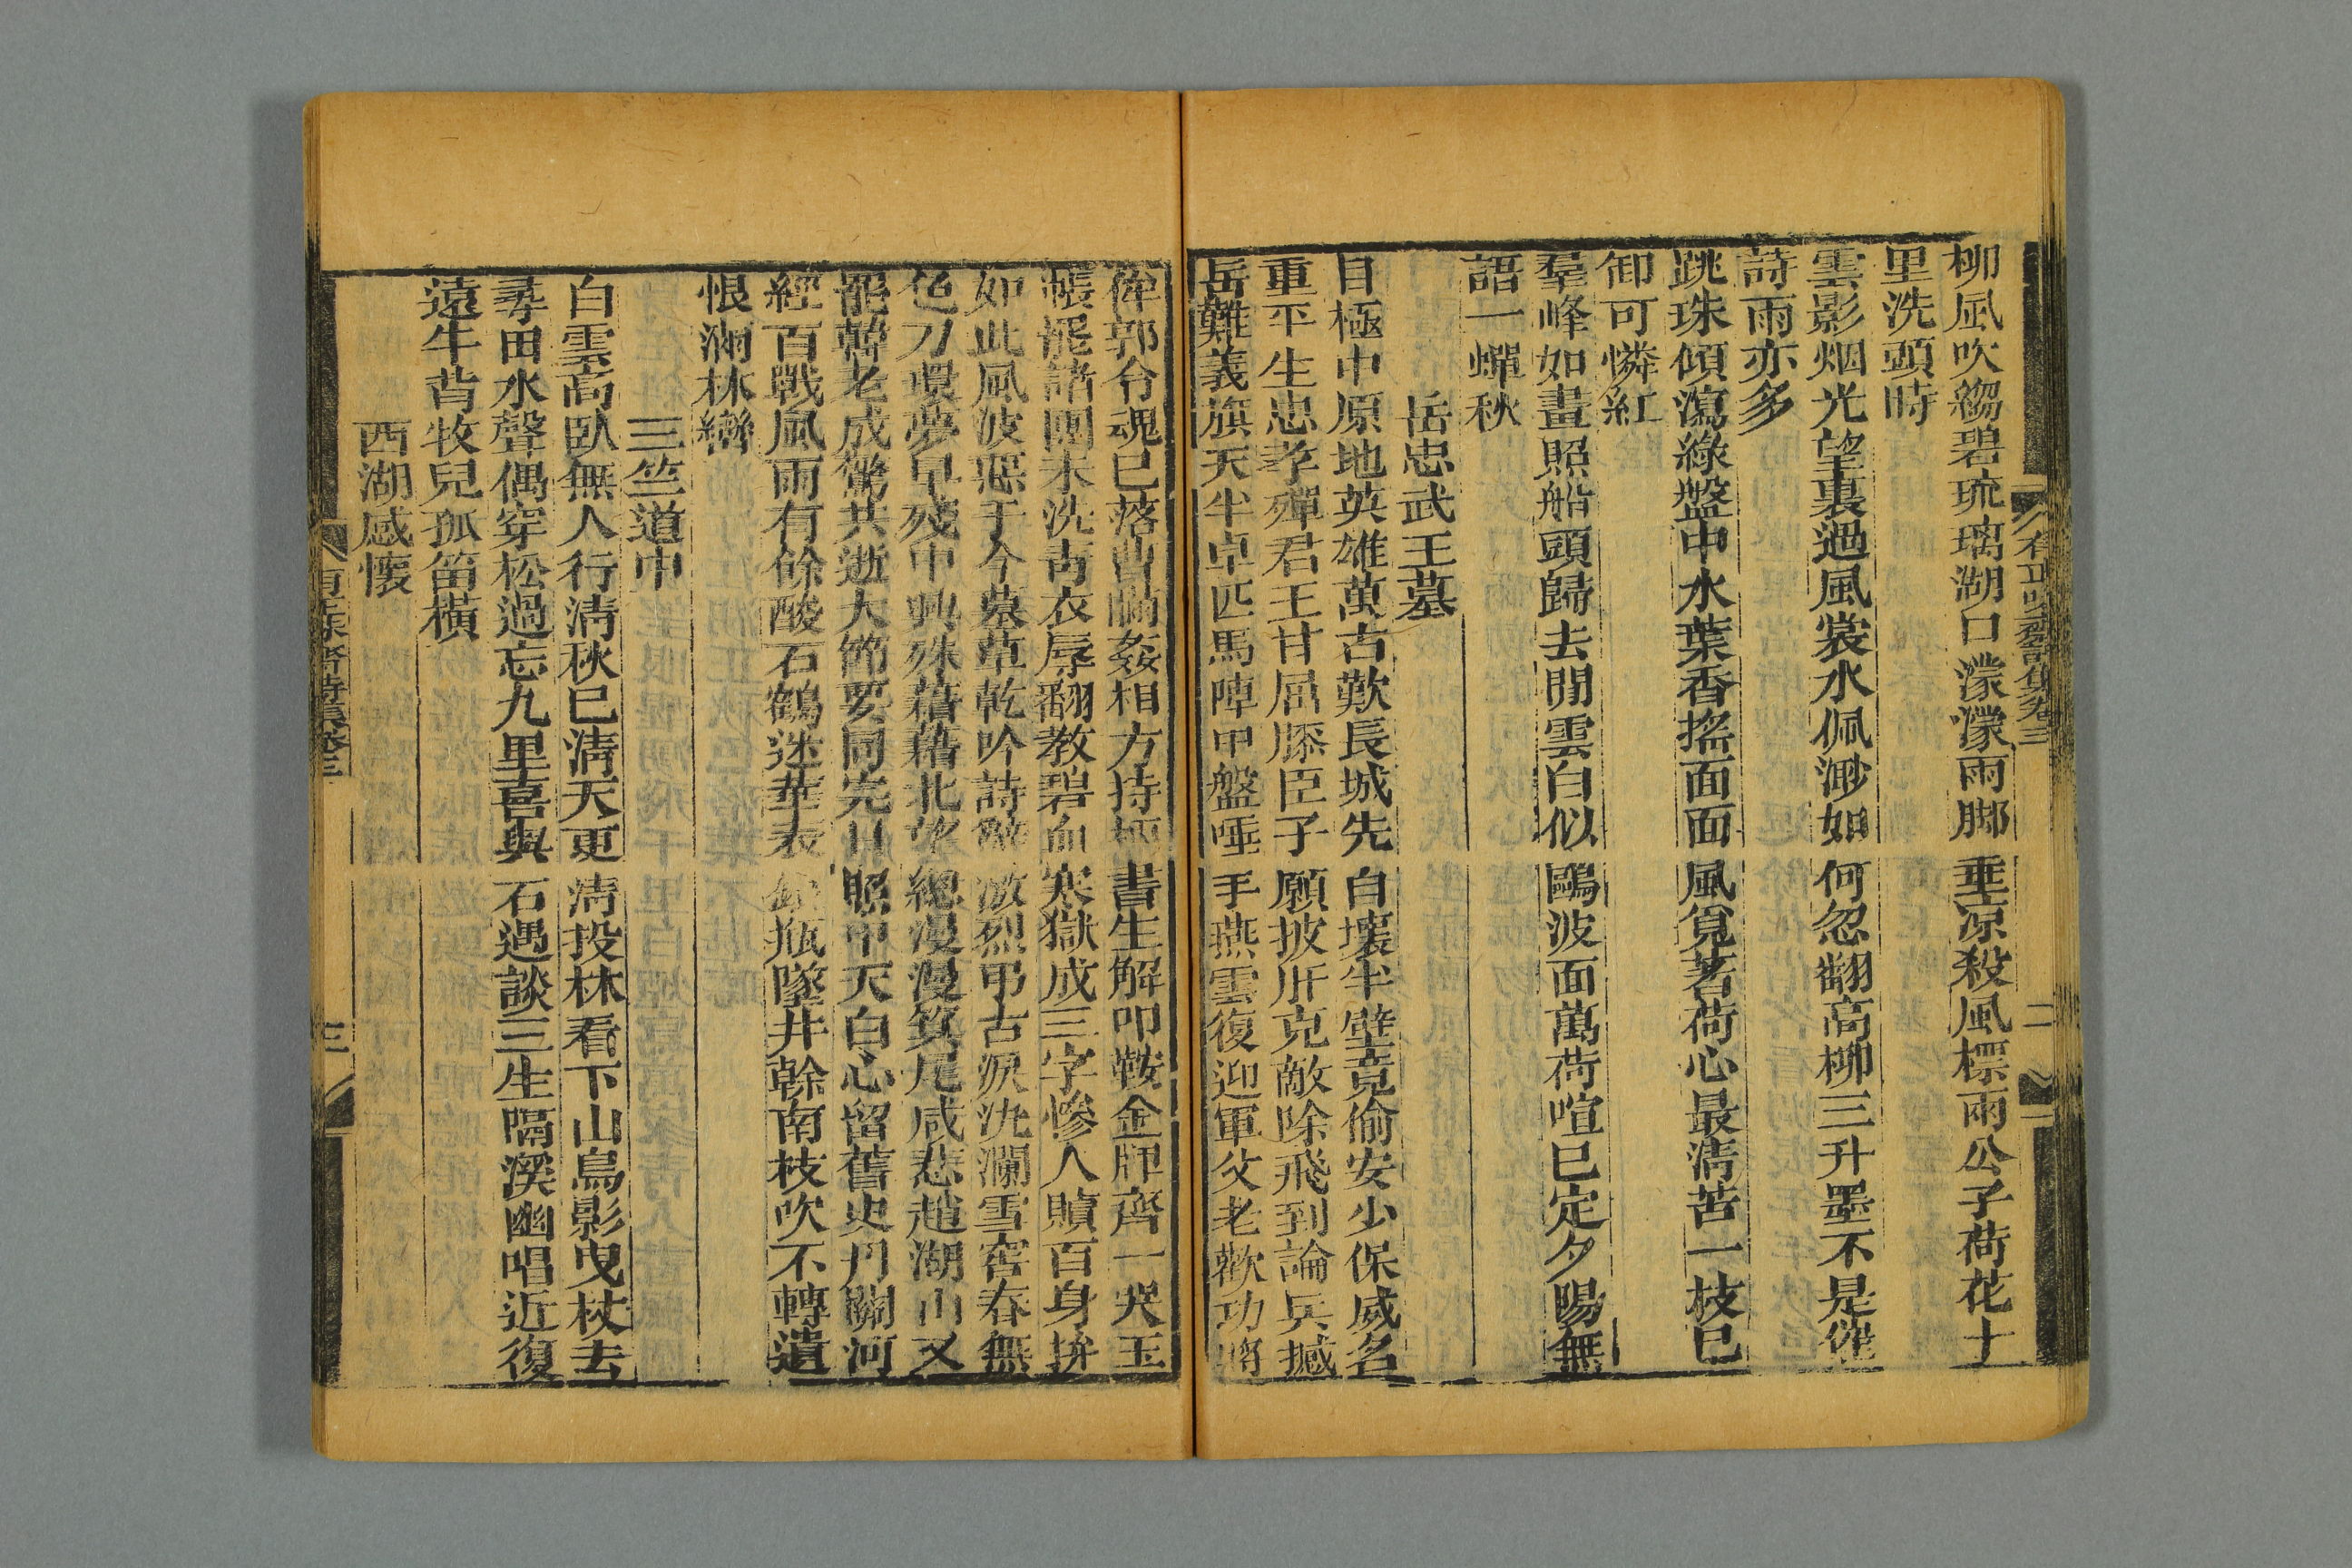 柳風吹縐碧琉璃湖口濛濛雨脚垂凉殺風標兩公子荷花十
里洗頭時
雲影烟光望裏過風裳水佩渺如何忽翻高柳三升墨不是催
詩雨亦多
跳珠傾瀉綠盤中水葉香搖面面風覓著荷心最清苦一枝已
卸可憐紅
羣峰如畫照船頭歸去閒雲白似鷗波面萬荷喧已定夕陽無
語一蟬秋
岳忠武王墓
目極中原地英雄萬古歎長城先自壞半壁竟偷安少保威名
重平生忠孝殫君王甘屈膝臣子願披肝克敵除飛到論兵撼
岳難義旗天半卓匹馬陣中盤唾手燕雲復迎軍父老歡功將
侔郭令魂已落曹瞞姦相方持柄書生解叩鞍金牌齊一哭玉
帳罷諸團未洗靑衣辱翻教碧血寒獄成三字慘人贖百身拚
如此風波惡于今墓草乾吟詩聲激烈弔古淚汍瀾雪窖春無
色刀環夢早殘中興殊藉藉北望總漫漫箕尾咸悲趙湖山又
罷韓老成驚共逝大節要同完日照中天白心留舊史丹關河
經百戰風雨有餘酸石鶴迷華表 瓶墜井榦南枝吹不轉遺
恨滿林巒
三竺道中
白雲高臥無人行清秋已清天更清投林看下山鳥影曳杖去
尋田水聲偶穿松過忘九里喜與石遇談三生隔溪幽唱近復
遠牛背牧兒孤笛橫
西湖感懷